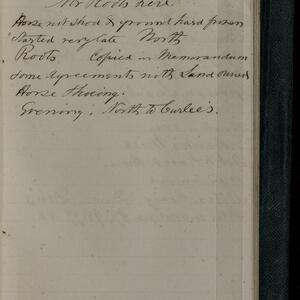 Mr Roots here.
Horse not shod & ground hard frozen
Started very late North
Roots Copied in Memorandum
some Agreements with Land owned
Horse Shoeing.
Evening. North to Curlee's.